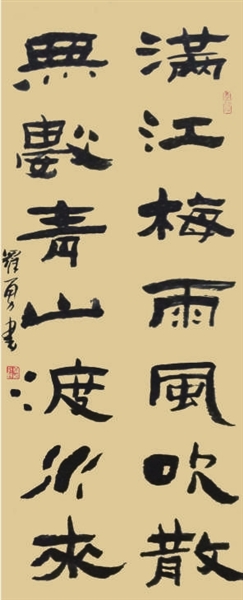 满江梅雨風吹散
無數青山渡水來